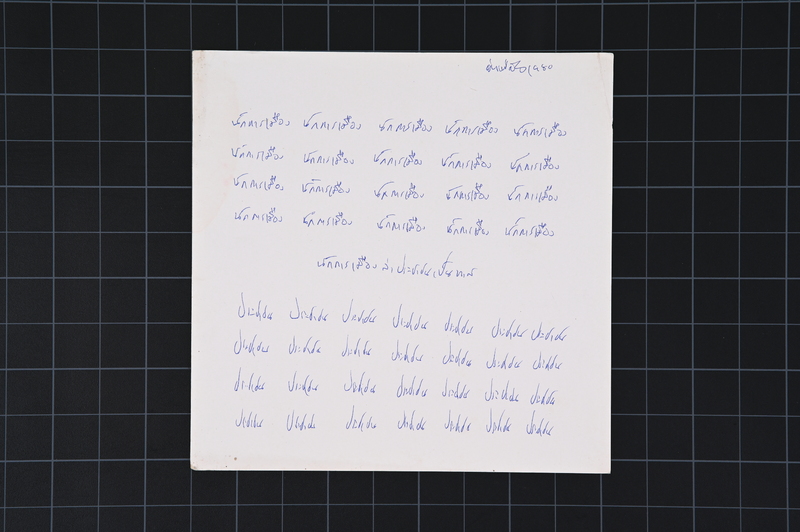 นักการเมือง นักการเมือง นักการเมือง นักการเมือง นักการเมือง
นักการเมือง นักการเมือง นักการเมือง นักการเมือง นักการเมือง
นักการเมือง นักการเมือง นักการเมือง นักการเมือง นักการเมือง
นักการเมือง นักการเมือง นักการเมือง นักการเมือง นักการเมือง
นักการเมือง ล่าประชาชนเป็นทาส
ประชาชน ประชาชน ประชาชน ประชาชน ประชาชน ประชาชน ประชาชน
ประชาชน ประชาชน ประชาชน ประชาชน ประชาชน ประชาชน ประชาชน
ประชาชน ประชาชน ประชาชน ประชาชน ประชาชน ประชาชน ประชาชน
ประชาชน ประชาชน ประชาชน ประชาชน ประชาชน ประชาชน ประชาชน